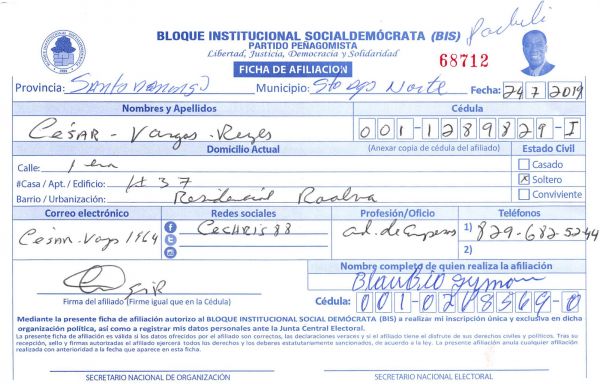 BLOQUE INSTITUCIONAL SOCIALDEMÓCRATA (BIS)
PARTIDO PEÑAGOMISTA
Libertad, Justicia, Democracia y Solidaridad
68712
FICHA DE AFILIACIÓN
Provincia: Santo Domingo Municipio: Sto Dgo Norte Fecha: 24/7/2019
Nombres y Apellidos Cédula
César - Vargas - Reyes 001-1289829-1
Domicilio Actual (Anexar copia de cédula del afiliado) Estado Civil
Calle: 1 era Casado
#Casa / Apt. / Edificio: # 37 Soltero
Barrio / Urbanización: Residencial Conviviente
Correo electrónico Redes sociales Profesión/Oficio Teléfonos
CECHRIS 88 1) 829-682-5244
2)
Nombre completo de quien realiza la afiliación
Firma del afiliado (Firme igual que en la Cédula) Cédula: 001-0268569-0
Mediante la presente ficha de afiliación autorizo al BLOQUE INSTITUCIONAL SOCIAL DEMÓCRATA (BIS) a realizar mi inscripción única y exclusiva en dicha
organización política, así como a registrar mis datos personales ante la Junta Central Electoral.
La presente ficha de afiliación es válida si los datos ofrecidos por el afiliado son correctos, las declaraciones veraces y si el afiliado tiene el disfrute de sus derechos civiles y políticos. Tras su
recepción, sello y firmas autorizadas el afiliado ejercerá todos los derechos y los deberes estatutariamente sancionados, de acuerdo a la ley. La presente afiliación anula cualquier afiliación
realizada con anterioridad a la fecha que aparece en esta ficha.
SECRETARIO NACIONAL DE ORGANIZACIÓN SECRETARIO NACIONAL ELECTORAL